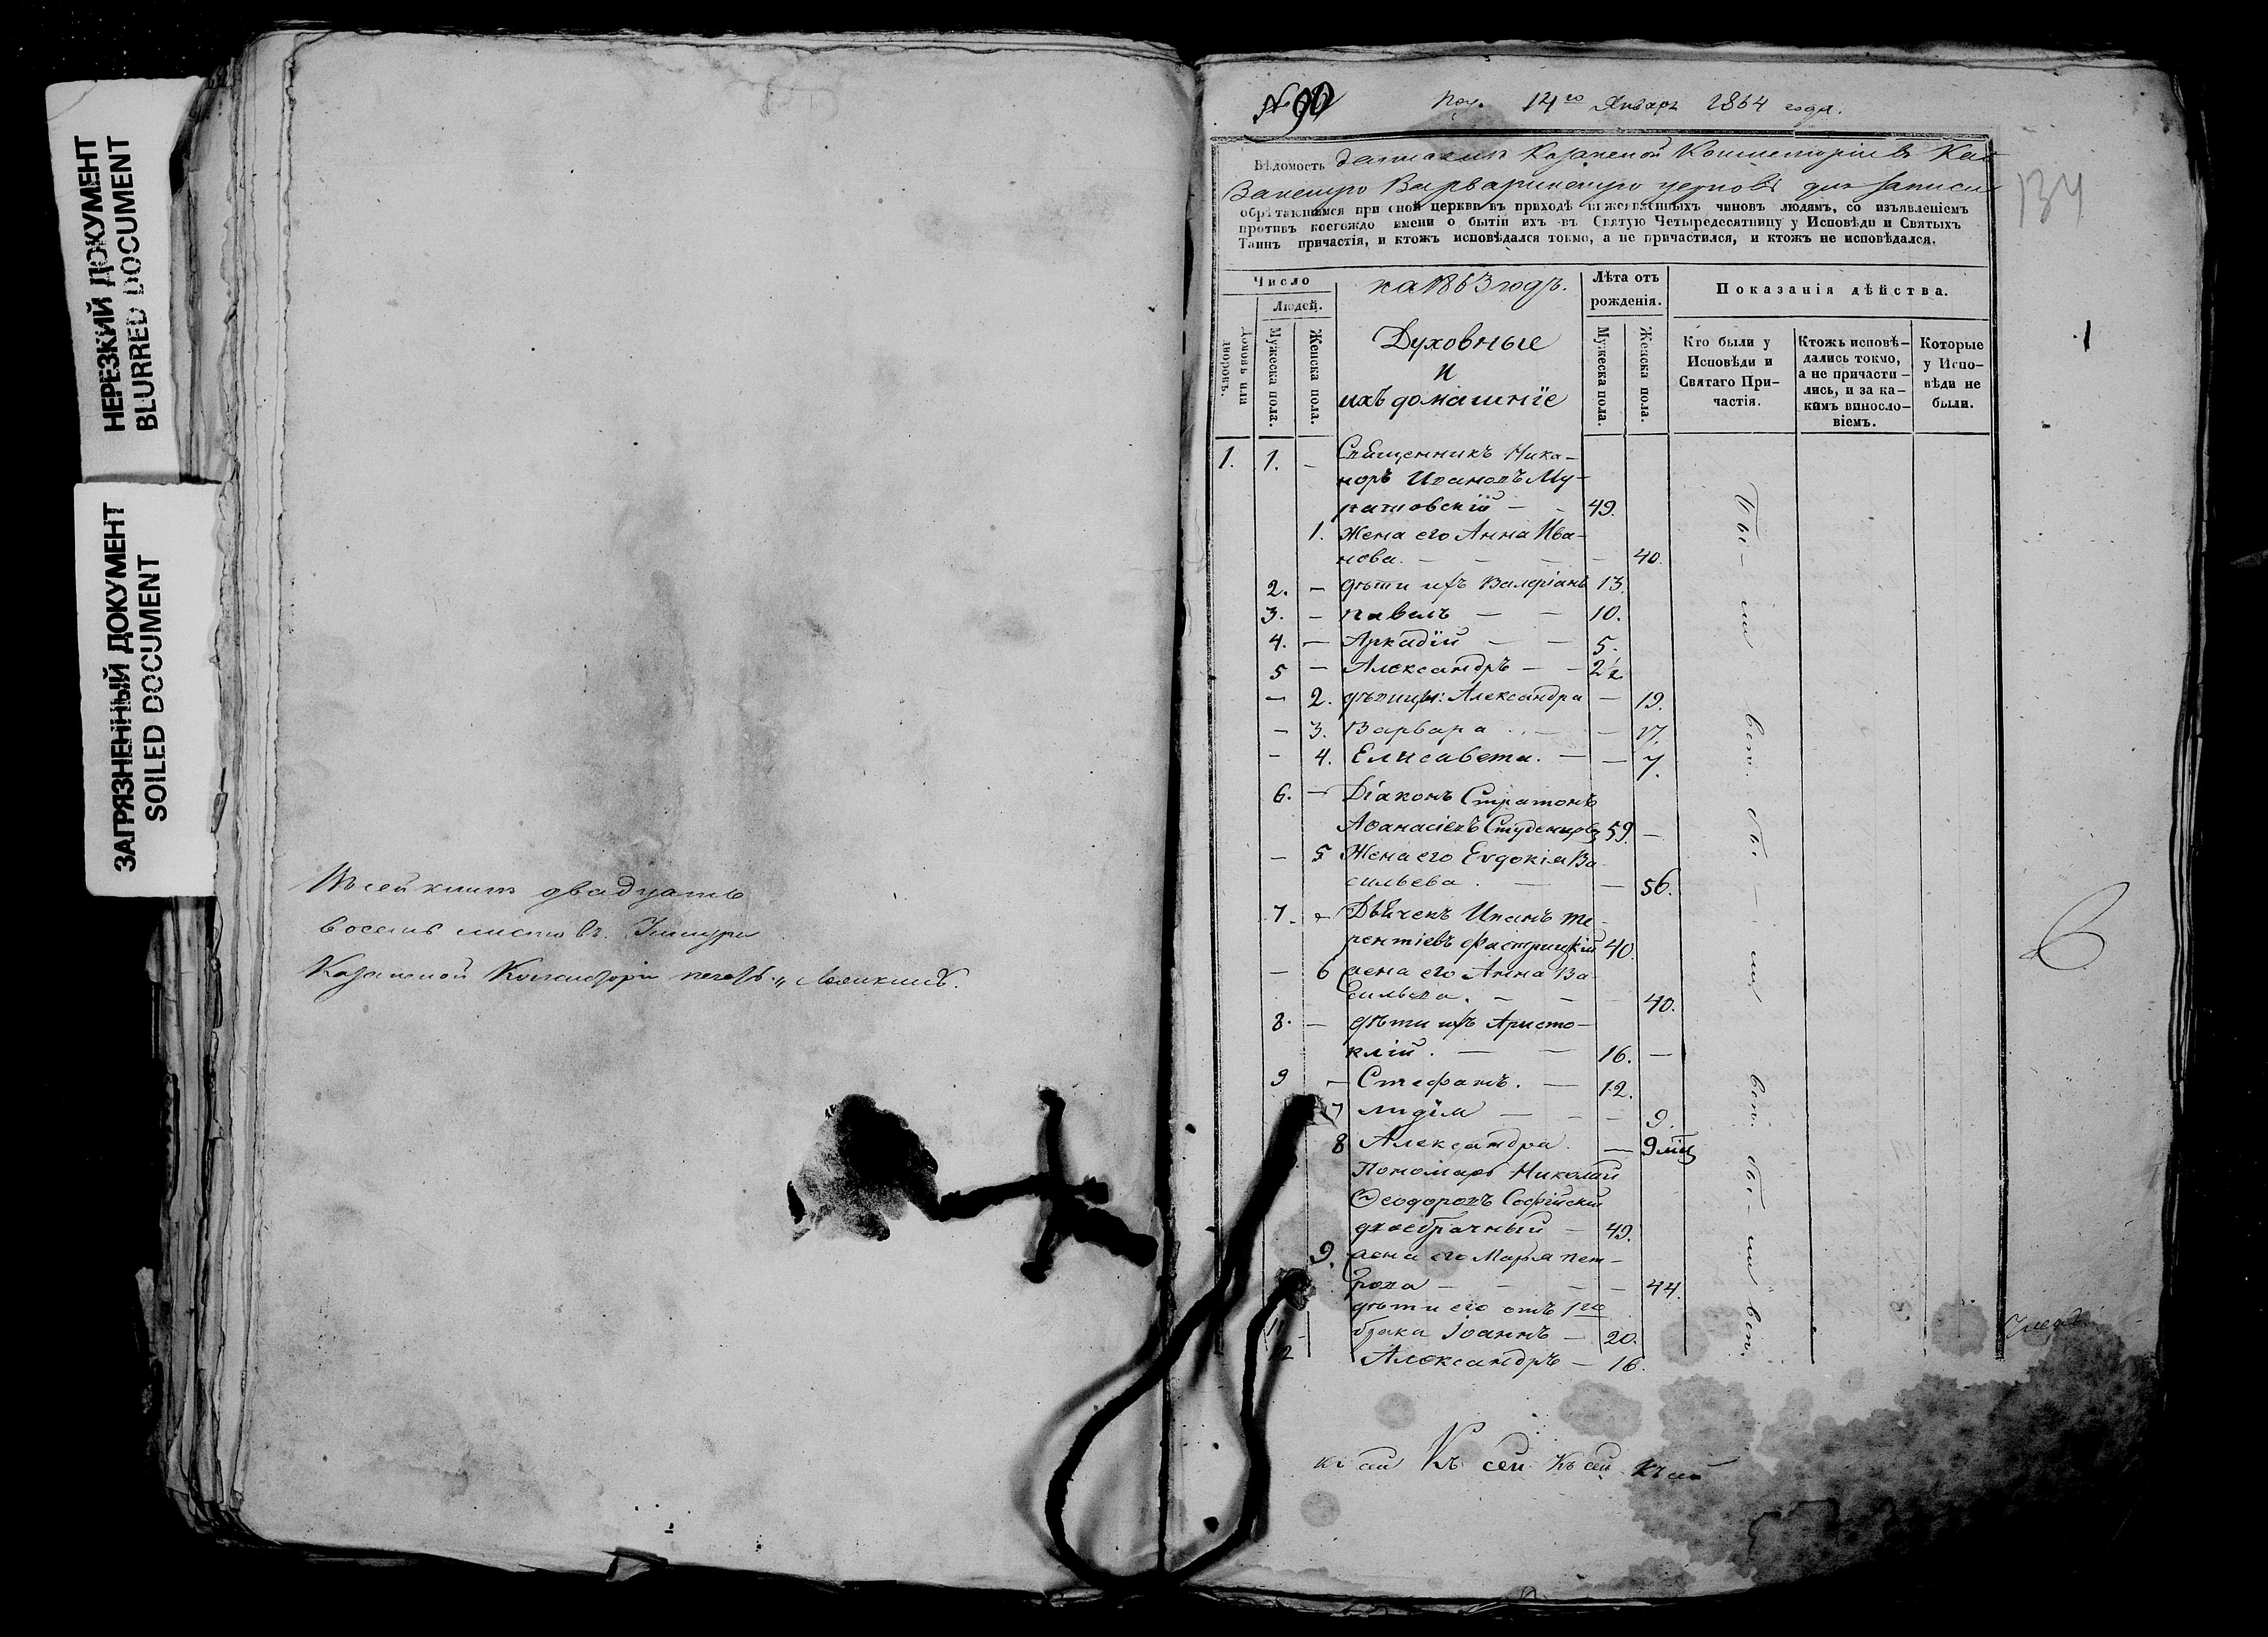 НЕРЕЗКИЙ ДОКУМЕНТ
BLURRED DOCUMENT
ЗАГРЯЗНЕННЫЙ ДОКУМЕНТ
SOILED DOCUMENT
Въ сей книгѣ двадцать
восемь листовъ.
Казанской Консисторіи
№ 90
Пол. 14го Январ 1864 года.
134
Вѣдомость данная изъ Казанской Консисторіи въ Ка-
занскую Варваринскую церковь для записи
обрѣтающимся при оной церкви въ приходѣ нижеявленныхъ чиновъ людямъ, со изъявленіемъ
противъ коегождо имени о бытіи ихъ въ Святую Четыредесятницу у Исповѣди и Святыхъ
Таинъ причастія, и ктожъ исповѣдался токмо, а не причастился, и ктожъ не исповѣдался.
Число
Людей.
Домовъ или дворовъ.
Мужеска пола.
Женска пола.
на 1863 годъ.
Духовные
и
ихъ домашніе
Лѣта отъ
рожденія.
Мужеска пола.
Женска пола.
Показанія дѣйства.
Кто были у
Исповѣди и
Святаго При-
частія.
Ктожъ исповѣ-
дались токмо,
а не причасти-
лись, и за ка-
кимъ винosло-
віемъ.
Которые
у Испо-
вѣди не
были.
1. 1. – Священникъ Ника-
норъ Ивановъ Му-
ратовскій – – 49.
1. Жена его Анна Ива-
нова. – – – – 40.
2. – дѣти ихъ Валеріанъ 13.
3. – Павелъ – – 10.
4. – Аркадій – – 5.
5 – Александръ – – 2½
– 2. дѣвицы: Александра – 19.
– 3. Варвара – – 17.
– 4. Елисавета. – – 7.
6. – Діаконъ Стратонъ
Аѳанасіевъ 59. –
– 5 Жена его Евдокія Ва-
сильева. – – 56.
7. – Дьячекъ Иванъ Те-
рентіевъ 40.
– 6 жена его Анна Ва-
сильева. – – 40.
8. – дѣти ихъ Аристо-
клій. – – 16. –
9 – Стефанъ. – 12.
7 Лидія – – – 9.
8 Александра. – 9 мѣц
Пономарь Николай
Ѳеодоровъ Софійскій
двоебрачный – 49.
9. жена его Марья Пет-
рова – – – – 44.
дѣти его отъ 1го
11 – брака Іоаннъ – 20.
12 Александръ – 16.
Къ сей Къ сей Къ сей Къ сей